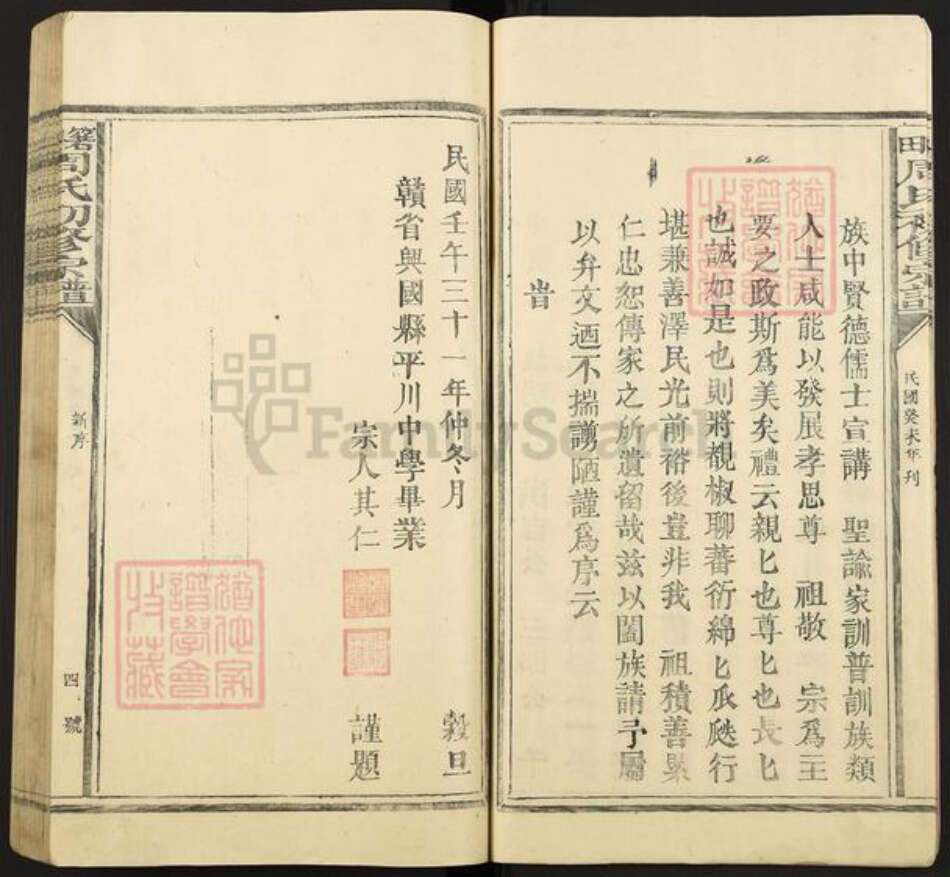 族中賢德儒士宣講　聖諭家訓普訓族類
人士咸能以發展孝思尊　祖敬　宗爲主
要之政斯爲美矣禮云親匕也尊匕也長匕
也誠如是也則將覩椒聊蕃衍綿匕瓜瓞行
堪兼善澤民光前裕後豈非我　祖積善累
仁忠恕傳家之所遺留哉兹以闔族請予屬
以弁文迺不揣謭陋謹爲序云
旹
民國癸未年刊
民國壬午三十一年仲冬月　穀旦
贛省興國縣平川中學畢業
宗人其仁　謹題
周氏初修宗譜
新序
四號
猶他家譜學會收藏
猶他家譜學會收藏
FamilySearch